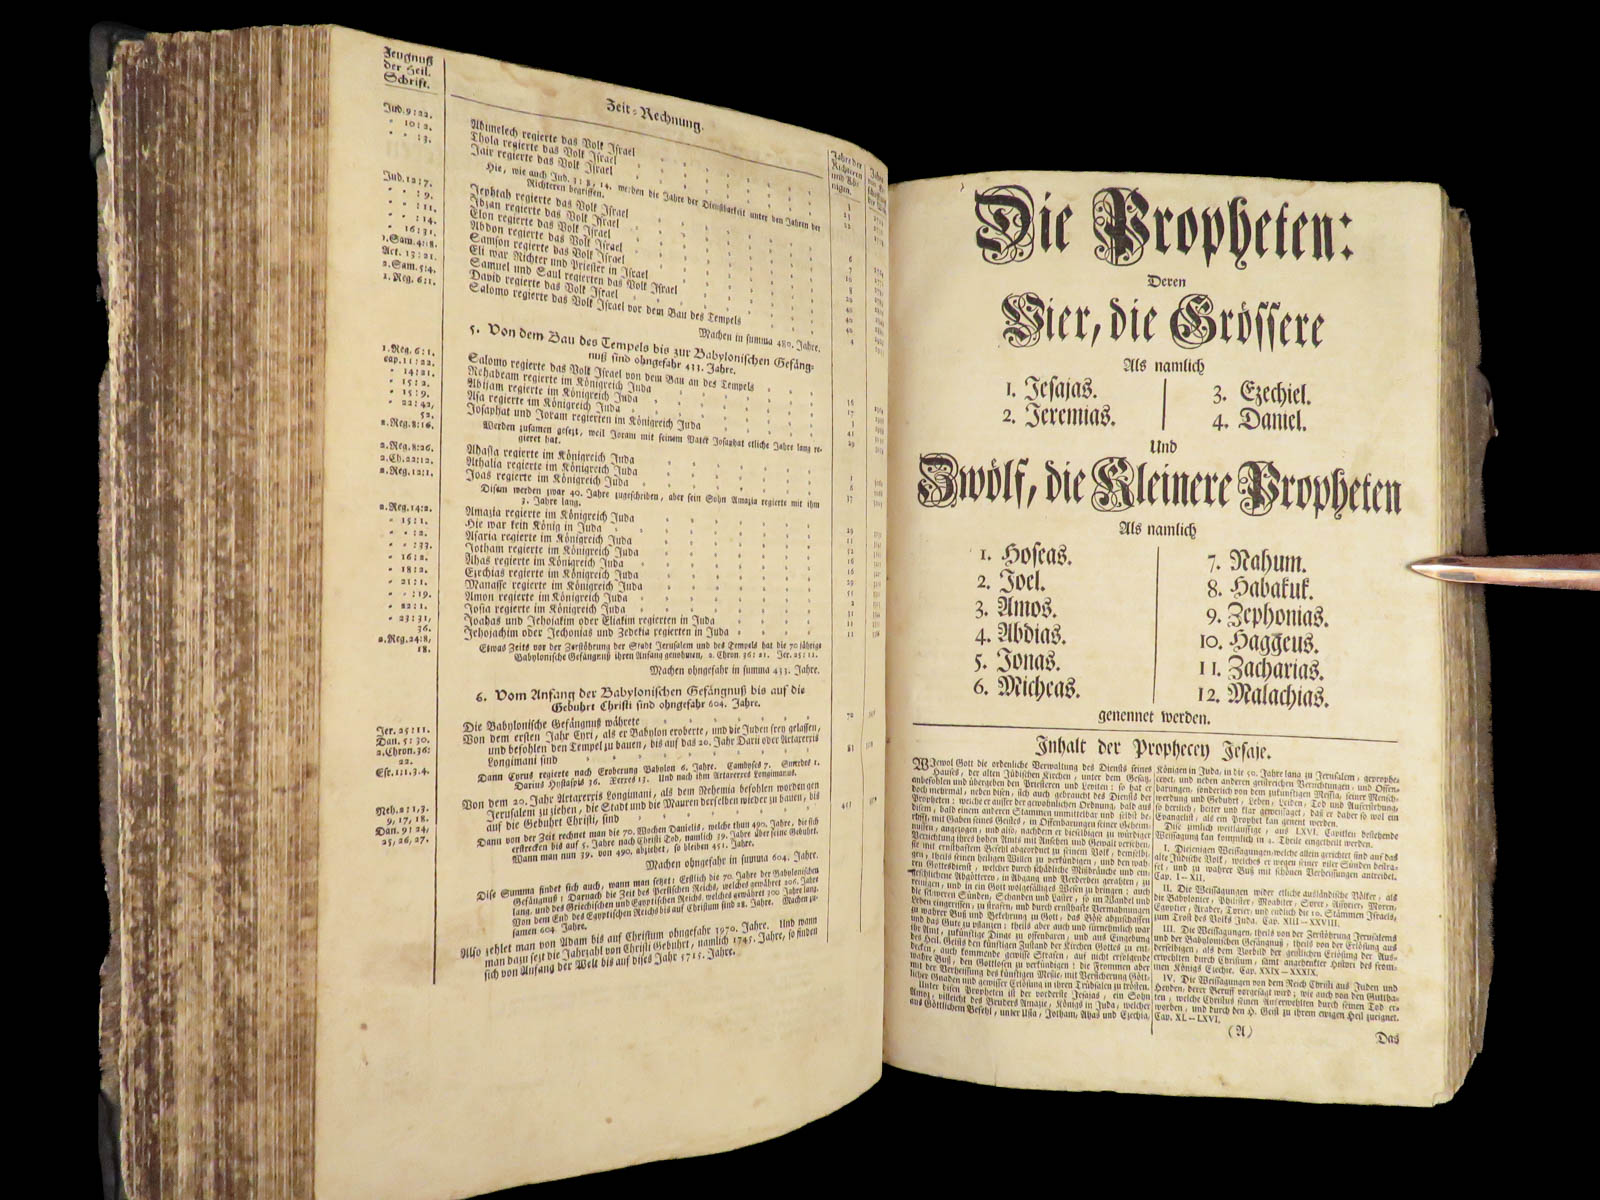 Zeugnuß
der Heil.
Schrift.
Zeit-Rechnung.
Jahre der
Richteren
und Kö-
nigen.
Jud. 9:22.
Abimelech regierte das Volk Israel
10:2.
Thola regierte das Volk Israel
:3.
Jair regierte das Volk Israel
Hie, wie auch Jud. werden die Jahre der Dienstbarkeit unter den Jahren der
Richteren begriffen.
Jud. 12:7.
Jephtah regierte das Volk Israel
:9.
Ibzan regierte das Volk Israel
:11.
Elon regierte das Volk Israel
:14.
Abdon regierte das Volk Israel
16:31.
Samson regierte das Volk Israel
1. Sam. 4:18.
Eli war Richter und Priester in Israel
Act. 13:21.
Samuel und Saul regierten das Volk Israel
2. Sam. 5:4.
David regierte das Volk Israel
1. Reg. 6:1.
Salomo regierte das Volk Israel vor dem Bau des Tempels
Machen in summa 480. Jahre.
5. Von dem Bau des Tempels bis zur Babylonischen Gefäng-
nuß sind ohngefahr 433. Jahre.
1. Reg. 6:1.
Salomo regierte das Volk Israel von dem Bau an des Tempels
cap. 11:22.
Rehabeam regierte im Königreich Juda
14:21.
Abijam regierte im Königreich Juda
15:2.
Asa regierte im Königreich Juda
15:9.
Josaphat und Joram regierten im Königreich Juda
22:42,
52.
2. Reg. 8:16.
Werden zusamen gesetzt, weil Joram mit seinem Vater Josaphat etliche Jahre lang re-
gieret hat.
2. Reg. 8:26.
Ahasia regierte im Königreich Juda
2. Ch. 22:12.
Athalia regierte im Königreich Juda
2. Reg. 12:1.
Joas regierte im Königreich Juda
Disem werden zwar 40. Jahre zugeschrieben, aber sein Sohn Amazia regierte mit ihm
3. Jahre lang.
2. Reg. 14:2.
Amazia regierte im Königreich Juda
15:1.
Hie war kein König in Juda
:2.
Asaria regierte im Königreich Juda
:33.
Jotham regierte im Königreich Juda
16:2.
Ahas regierte im Königreich Juda
18:2.
Ezechias regierte im Königreich Juda
21:1.
Manasse regierte im Königreich Juda
:19.
Amon regierte im Königreich Juda
22:1.
Josia regierte im Königreich Juda
23:31,
36.
Joahas und Jehojakim oder Eliakim regierten in Juda
2. Reg. 24:8,
18.
Jehojachim oder Jechonias und Zedekia regierten in Juda
Etwas Zeits vor der Zerstöhrung der Stadt Jerusalem und des Tempels hat die 70 jährige
Babylonische Gefängnuß ihren Anfang genohmen, 2. Chron. 36:21. Jer. 25:11.
Machen ohngefahr in summa 433. Jahre.
6. Vom Anfang der Babylonischen Gefängnuß bis auf die
Gebuhrt Christi sind ohngefahr 604. Jahre.
Jer. 25:11.
Die Babylonische Gefängnuß währete 70
Dan. 5:30.
Von dem ersten Jahr Cyri, als er Babylon eroberte, und die Juden frey gelassen,
2. Chron. 36:
22.
und befohlen den Tempel zu bauen, bis auf das 20. Jahr Darii oder Artaxerxis
Esr. 1:1.3.4.
Longimani sind
Dann Cyrus regierte nach Eroberung Babylon 6. Jahre. Cambyses 7. Smerdes 1.
Darius Hystaspis 36. Xerxes 13. Und nach ihm Artaxerxes Longimanus.
Neh. 2:1,3.
Von dem 20. Jahr Artaxerxis Longimani, als dem Nehemia befohlen worden gen
9, 17, 18.
Jerusalem zu ziehen, die Stadt und die Mauren derselben wieder zu bauen, bis
Dan. 9:24,
auf die Gebuhrt Christi, sind 451
25, 26, 27.
Dann von der Zeit rechnet man die 70. Wochen Danielis, welche thun 490. Jahre, die sich
erstrecken bis auf 5. Jahre nach Christi Tod, namlich 39. Jahre über seine Gebuhrt.
Wann man nun 39. von 490. abziehet, so bleiben 451. Jahre.
Machen ohngefahr in summa 604. Jahre.
Dise Summa findet sich auch, wann man setzet: Erstlich die 70. Jahre der Babylonischen
Gefängnuß; Darnach die Zeit des Persischen Reichs, welches gewähret 206. Jahre
lang, und des Griechischen und Egyptischen Reichs, welches gewähret 300 Jahre lang.
Von dem End des Egyptischen Reichs bis auf Christum sind 28. Jahre. Machen zu-
samen 604. Jahre.
Also zehlet man von Adam bis auf Christum ohngefahr 3970. Jahre. Und wann
man dazu setzt die Jahrzahl von Christi Gebuhrt, namlich 1745. Jahre, so finden
sich von Anfang der Welt bis auf dises Jahr 5715. Jahre.
Die Propheten:
Deren
Vier, die Grössere
Als namlich
1. Jesajas.
2. Jeremias.
3. Ezechiel.
4. Daniel.
Und
Zwölf, die Kleinere Propheten
Als namlich
1. Hoseas.
2. Joel.
3. Amos.
4. Abdias.
5. Jonas.
6. Micheas.
7. Nahum.
8. Habakuk.
9. Zephonias.
10. Haggeus.
11. Zacharias.
12. Malachias.
genennet werden.
Inhalt der Prophecey Jesaje.
Wiewol Gott die ordenliche Verwaltung des Diensts seines
Hauses, der alten Jüdischen Kirchen, unter dem Gesatz,
anbefohlen und übergeben den Priesteren und Leviten: so hat er
doch mehrmal, neben disen, sich auch gebraucht des Diensts der
Propheten: welche er ausser der gewohnlichen Ordnung, bald aus
disem, bald einem anderen Stammen unmittelbar und selbst be-
rüfft, mit Gaben seines Geistes, in Offenbarungen seiner Geheim-
nussen, angezogen, und also, nachdem er dieselbigen zu würdiger
Verrichtung ihres hohen Amts mit Ansehen und Gewalt versehen,
sie mit ernsthaftem Befehl abgeordnet zu seinem Volk, demselbi-
gen, theils seinen heiligen Willen zu verkündigen, und den wah-
ren Gottesdienst, welcher durch schädliche Mißbräuche und ein-
geschlichene Abgötterey, in Abgang und Verderben gerahten, zu
reinigen, und in ein Gott wolgefälliges Wesen zu bringen: auch
die schweren Sünden, Schanden und Laster, so im Wandel und
Leben eingerissen, zu strafen, und durch ernsthafte Vermahnungen
zu wahrer Buß und Bekehrung zu Gott, das Böse abzuschaffen
und das Gute zu pflanzen: theils aber auch und fürnehmlich war
ihr Amt, zukünftige Dinge zu offenbaren, und aus Eingebung
des Heil. Geists den künftigen Zustand der Kirchen Gottes zu ent-
decken, auch kommende gewisse Strafen, auf nicht erfolgende
wahre Buß, den Gottlosen zu verkündigen: die Frommen aber
mit der Verheissung des künftigen Meßie, mit Versicherung Gött-
licher Gnaden und gewisser Erlösung in ihren Trübsalen zu trösten.
Unter disen Propheten ist der vorderste Jesajas, ein Sohn
Amoz, villeicht des Bruders Amazie, Königs in Juda, welcher
aus Göttlichem Befehl, unter Usia, Jotham, Ahas und Ezechia,
Königen in Juda, in die 50. Jahre lang zu Jerusalem, geprophe-
ceyet, und neben anderen geistreichen Verrichtungen, und Offen-
barungen, sonderlich von dem zukünftigen Meßia, seiner Mensch-
werdung und Gebuhrt, Leben, Leiden, Tod und Auferstehung,
so herrlich, heiter und klar geweissaget, das er daher so wol ein
Evangelist, als ein Prophet kan genent werden.
Dise zimlich weitläuftige, aus LXVI. Capitlen bestehende
Weissagung kan kommlich in 4. Theile eingetheilt werden.
I. Diejenigen Weissagungen, welche allein gerichtet sind auf das
alte Jüdische Volk, welches er wegen seiner viler Sünden bestra-
fet, und zu wahrer Buß mit schönen Verheissungen antreibet.
Cap. I-XII.
II. Die Weissagungen wider etliche ausländische Völker, als
die Babylonier, Philister, Moabiter, Syrer, Assyrer, Moren,
Egyptier, Araber, Tyrier, und endlich die 10. Stämmen Israels,
zum Trost des Volks Juda. Cap. XIII-XXVIII.
III. Die Weissagungen, theils von der Zerstöhrung Jerusalems
und der Babylonischen Gefängnuß, theils von der Erlösung aus
derselbigen, als dem Vorbild der geistlichen Erlösung der Aus-
erwehlten durch Christum, samt angehenkter Histori des from-
men Königs Ezechie. Cap. XXIX-XXXIX.
IV. Die Weissagungen von dem Reich Christi aus Juden und
Heyden, derer Beruff vorgesagt wird; wie auch von den Guttha-
ten, welche Christus seinen Auserwehlten durch seinen Tod er-
worben, und durch den H. Geist zu ihrem ewigen Heil zueignet.
Cap. XL-LXVI.
(A)
Das